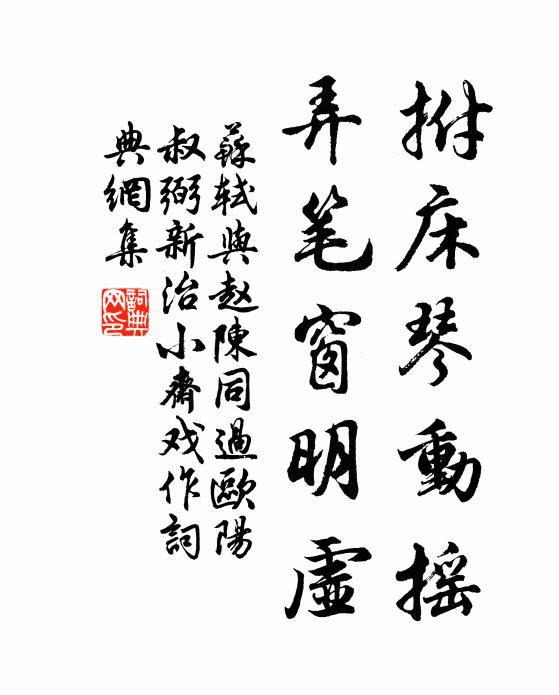 拊床琴動摇
弄笔窗明虚
蘇轼與赵陳同過歐陽
叔弼新治小齋戏作詞
典網集
詞典
网印